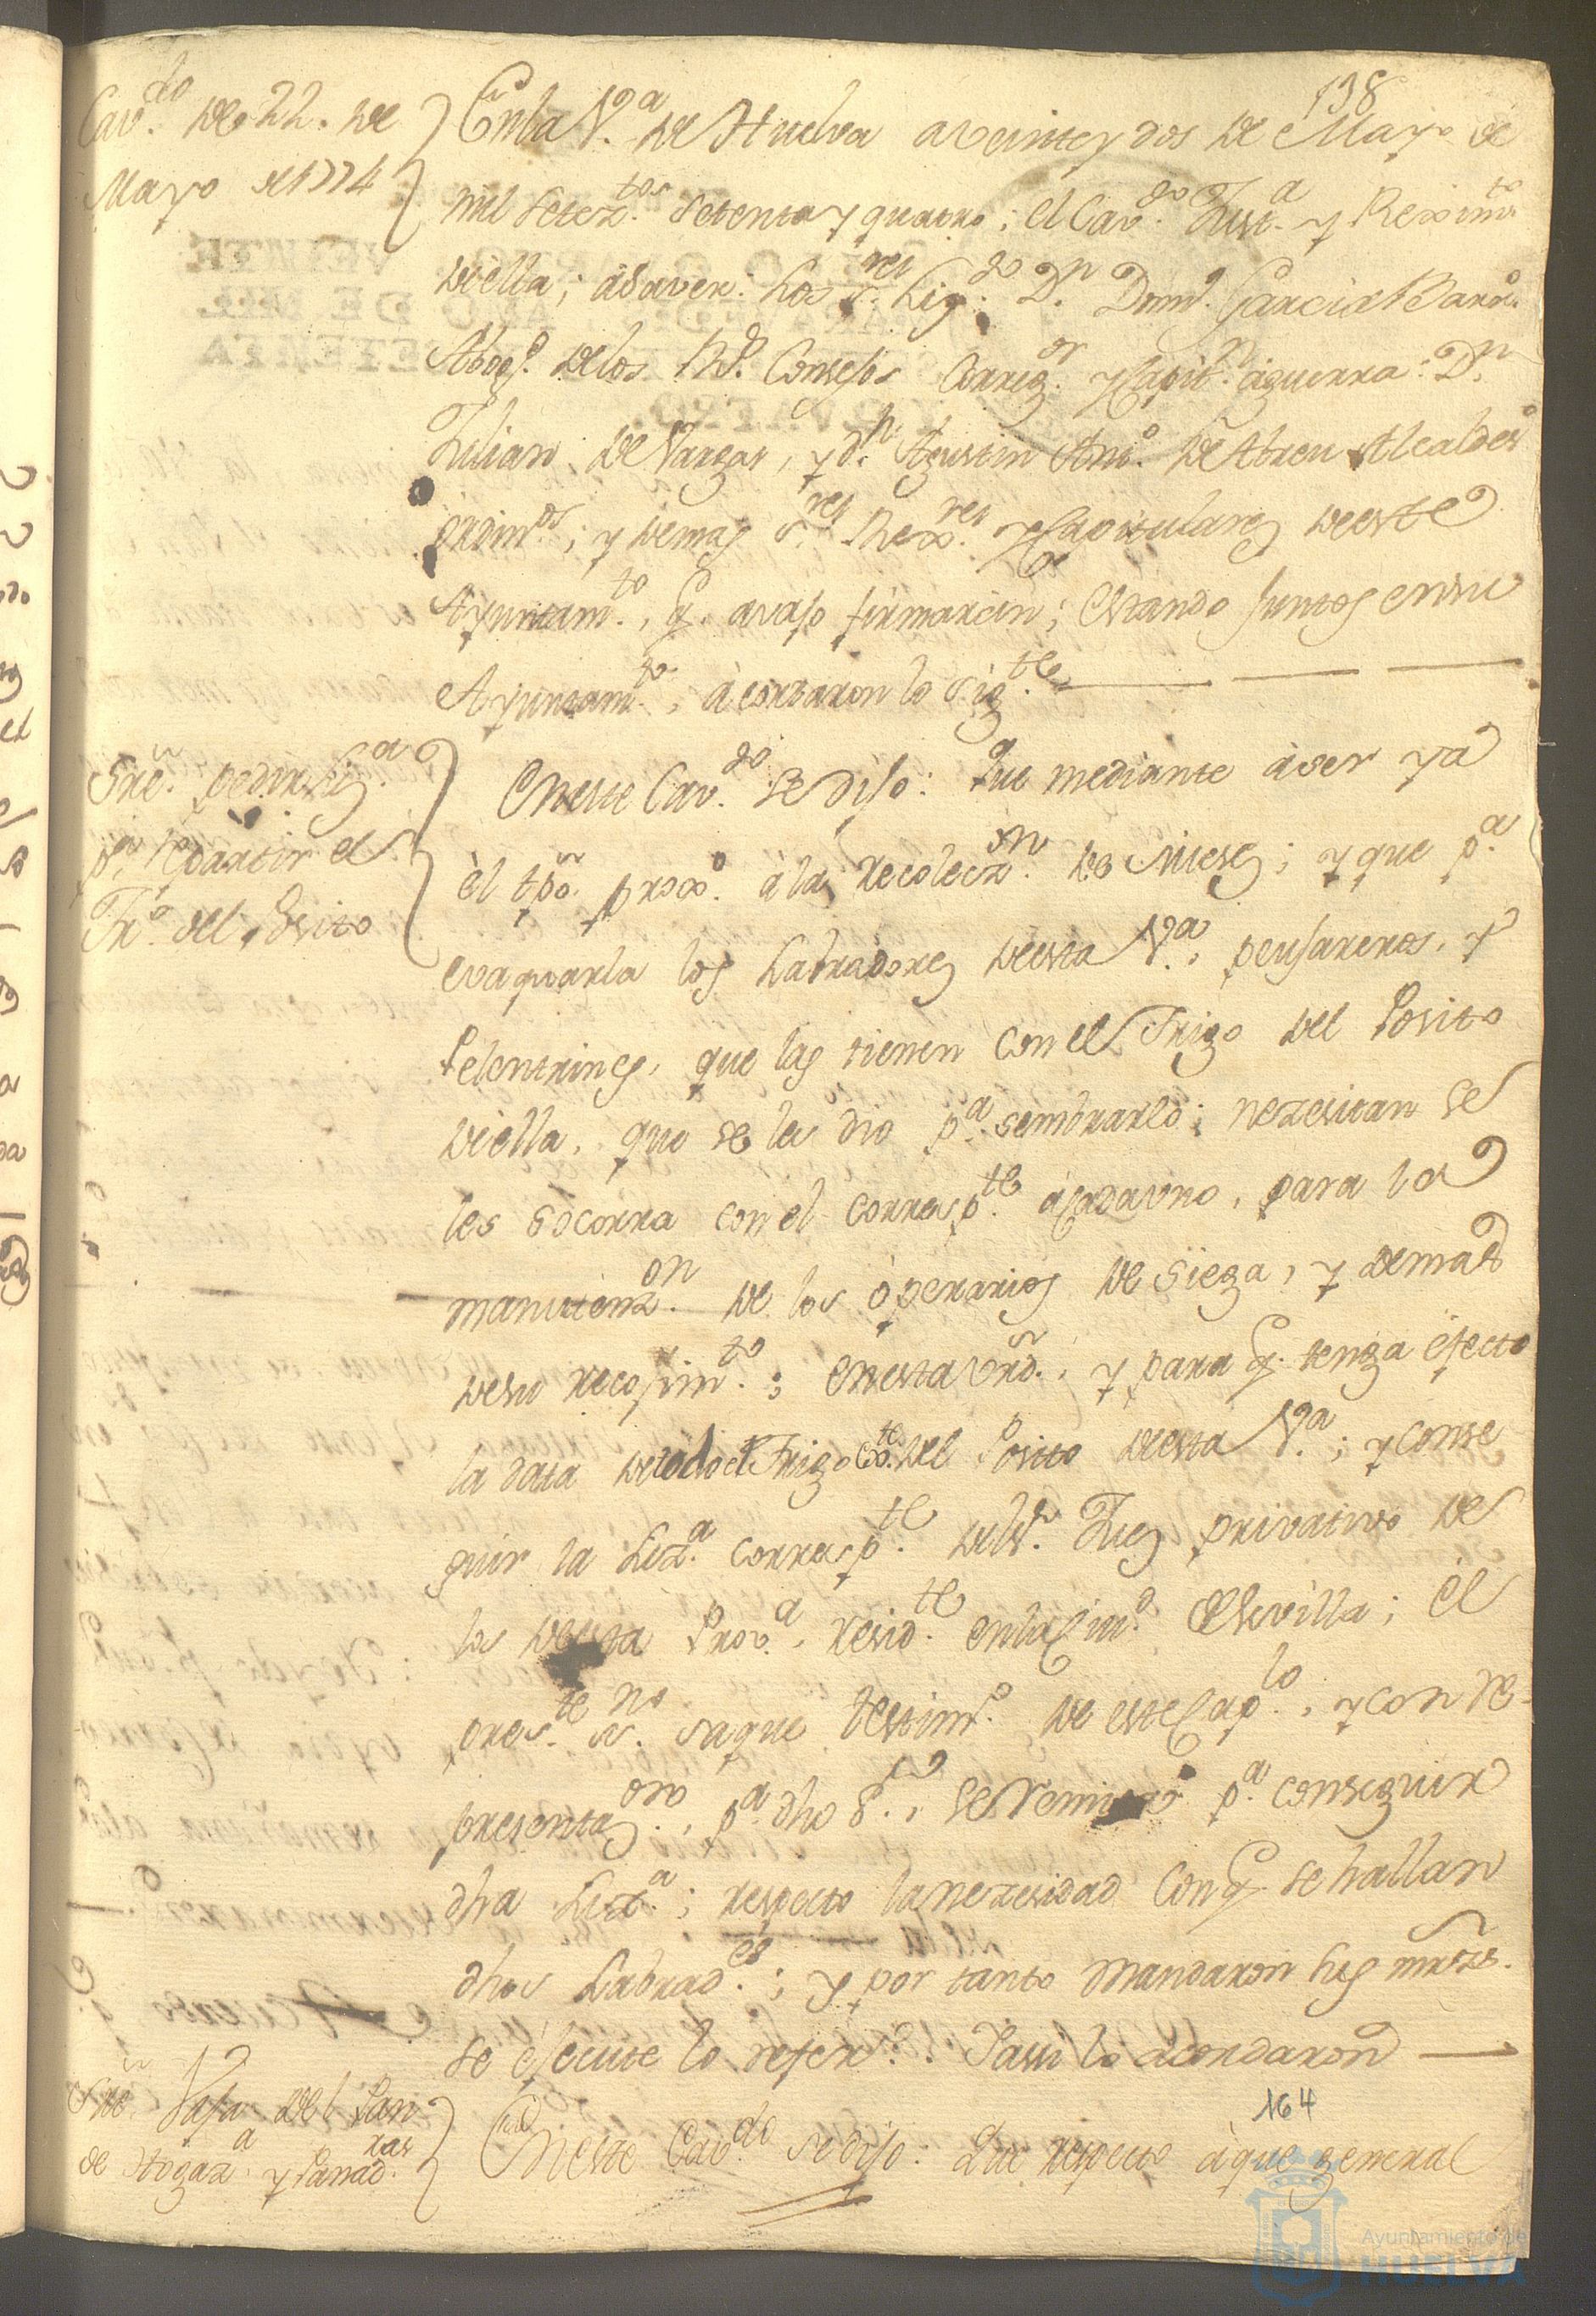 138
Cav.do de 22. de
Mayo de 1774
En la V.a de Huelva a veinte y dos de Mayo de
mil setez.tos setenta y quatro; el Cav.do Just.a y Reximto
de ella; a saver: Los s.res Liz.do D.n Dom.o Garcia Barr.o
Abog.do de los R.s Consejos Correg.or y Capit.n a guerra: D.n
Julian de Vargas, y d.n Agustin Ant.o de Abreu Alcaldes
ordin.os; y demas s.res Rex.res y Capitulares de este
Ayuntam.to, q. avajo firmaran; estando juntos en su
Ayuntam.to, acordaron lo sig.te
Sre. pedir Liz.a
p.a repartir el
Tr.o del Posito
En este Cav.do se dijo: Que mediante a ser ya
el tpo. prox.o a la recolecz.on de Mieses; y que p.a
evaquarla los Labradores de esta V.a, peujareros, y
Pelentrines, que las tienen con el Trigo del Posito
de ella, que se les dio p.a sembrarlo; nezesitan se
les socorra con el corresp.te a cada uno, para la
manutenz.on de los operarios de siega, y demas
de su recojim.to; en esta vrd., y para q. tenga efecto
la data de todo el Trigo ex.te del Posito de esta V.a; y conse
guir la Liz.a corresp.te del s.r Juez privativo de
los de esta Prov.a, resid.te en la Ciu.d de Sevilla; el
pres.te ss.no saque testim.o de este Cap.lo, y con re-
presentaz.on, p.a dho s.r, se remita p.a conseguir
dha Liz.a; respecto la nezesidad con q. se hallan
dhos Labrad.es; y por tanto mandaron sus mrzds.
se ejecute lo refer.do. Y assi lo acordaron
Sre Vaja del Pan
de Hogaz.a y Panad.ras
164
En este Cav.do se dijo: Que respecto a que general
Ayuntamiento de
HUELVA